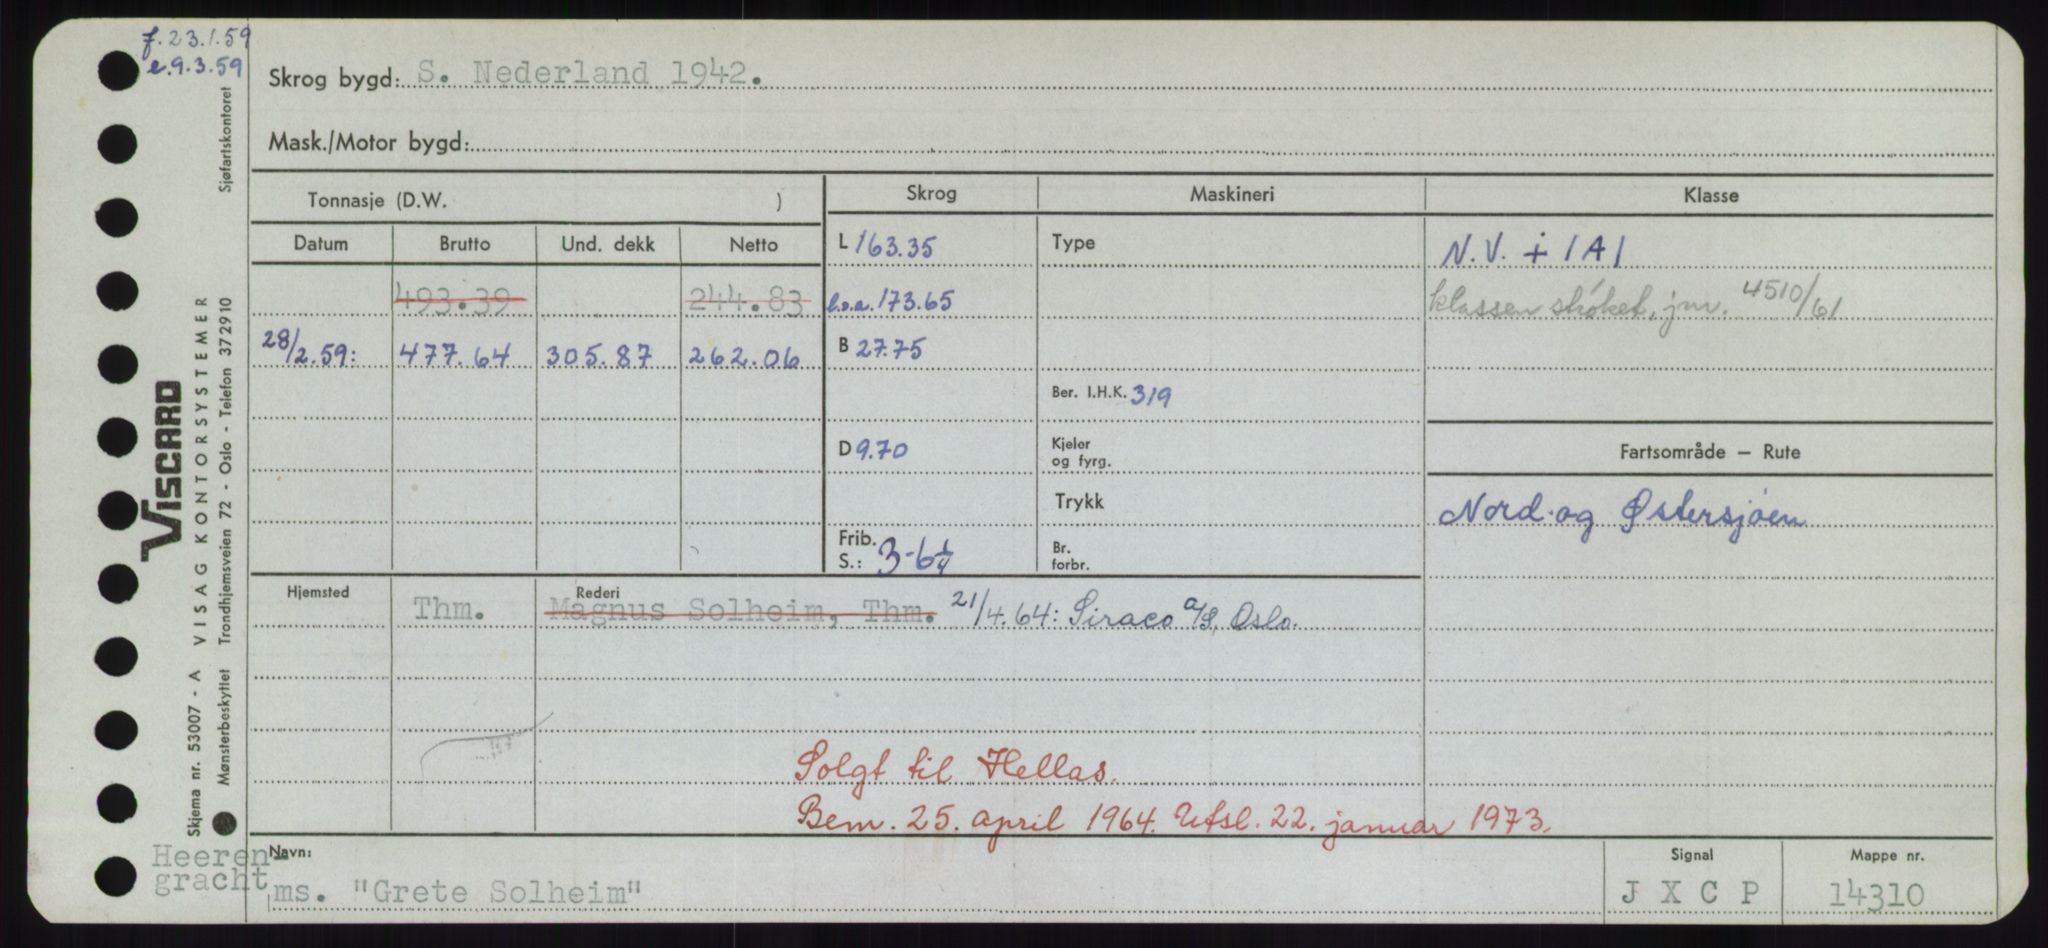 f.23.1.59
e.9.3.59
Skrog bygd: S. Nederland 1942.
Mask./Motor bygd:
Tonnasje (D.W. )
Skrog
Maskineri
Klasse
Datum
Brutto
Und. dekk
Netto
L 163.35
Type
N.V. + 1A1
493.39
244.83
l.o.a. 173.65
klassen strøket, jnr. 4510/61
28/2.59:
477.64
305.87
262.06
B 27.75
Ber. I.H.K. 319
D 9.70
Kjeler
og fyrg.
Fartsområde — Rute
Trykk
Nord-og Østersjøen
Frib.
S.: 3-6¼
Br.
forbr.
Hjemsted
Rederi
Thm.
Magnus Solheim, Thm. 21/4.64: Siraco a/s, Oslo.
Solgt til Hellas.
Bem. 25. april 1964. Utsl. 22. januar 1973.
Heeren-
gracht
Navn:
ms. "Grete Solheim"
Signal
J X C P
Mappe nr.
14310
VISCARD
Skjema nr. 53007 - A VISAG KONTORSYSTEMER
Mønsterbeskyttet Trondhjemsveien 72 - Oslo - Telefon 372910 Sjøfartskontoret